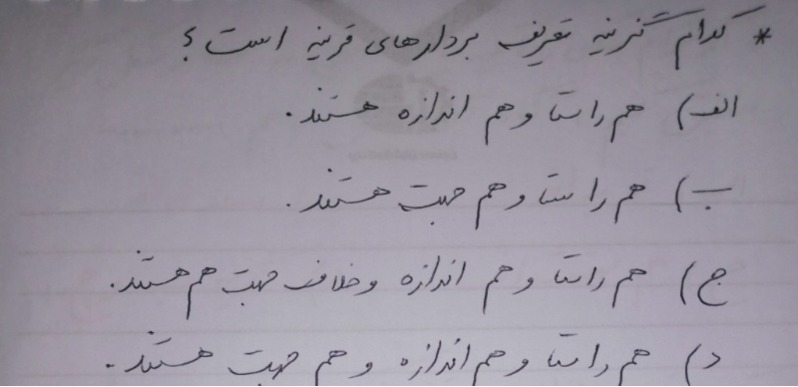 * کدام گزینه تعریف بردارهای قرینه است؟
الف) هم راستا و هم اندازه هستند.
ب) هم راستا و هم جهت هستند.
ج) هم راستا و هم اندازه و خلاف جهت هم هستند.
د) هم راستا و هم اندازه و هم جهت هستند.